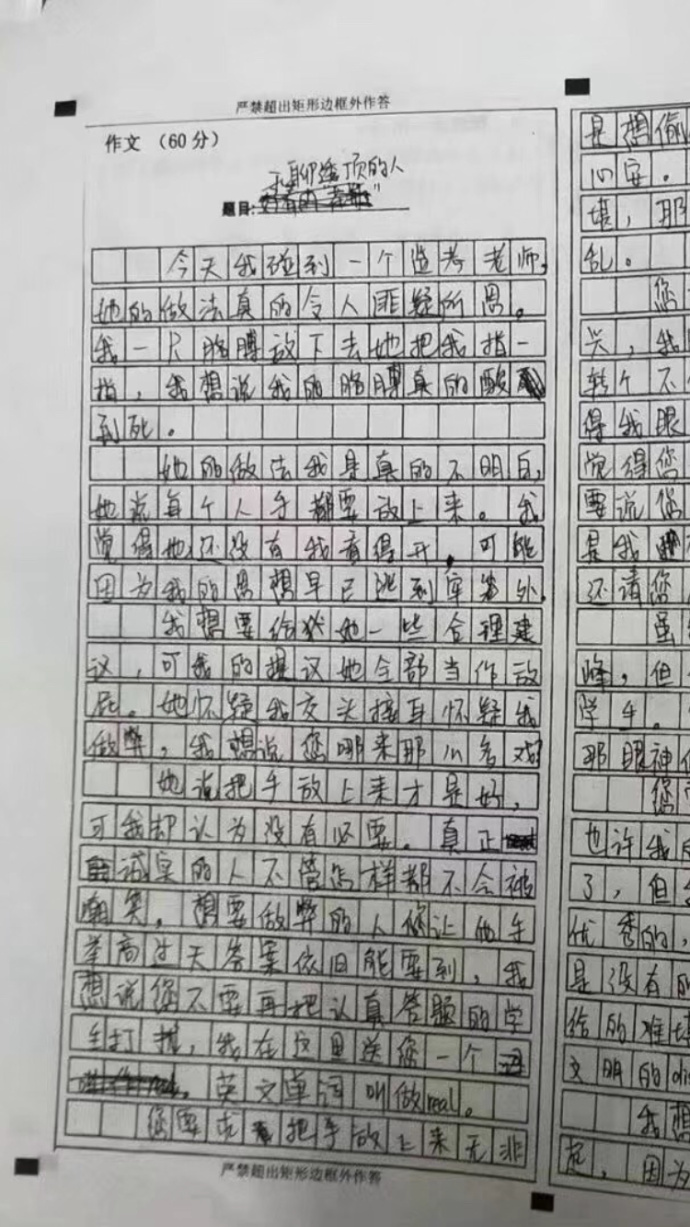 严禁超出矩形边框外作答
作文 (60分)
无聊透顶的人
题目:
今天我碰到一个监考老师,
她的做法真的令人匪疑所思。
我一只胳膊放下去她把我指一
指,我想说我的胳膊真的酸
到死。
她的做法我是真的不明白,
她说每个人手都要放上来。我
觉得她还没有我看得开,可能
因为我的思想早已逃到牢笼外.
我想要给她一些合理建
议,可我的提议她全部当作放
屁。她怀疑我交头接耳怀疑我
做弊,我想说您哪来那么多戏
她说把手放上来才是好,
可我却认为没有必要。真正
诚实的人不管怎样都不会被
嘲笑。想要做弊的人你让他手
举高过天答案依旧能要到,我
想说您不要再把认真答题的学
生打扰,我在这里送您一个
英文单词叫做real。
您要求把手放上来无非
严禁超出矩形边框外作答
是想偷
心安。
堪,那
乱。
您
兴,我
转个不
得我眼
觉得您
要说您
是我
还请您
虽
峰,但
学生。
那眼神
您
也许我
了,但
优秀的,
是没有的
给的难堪
文明的
我想
起,因为